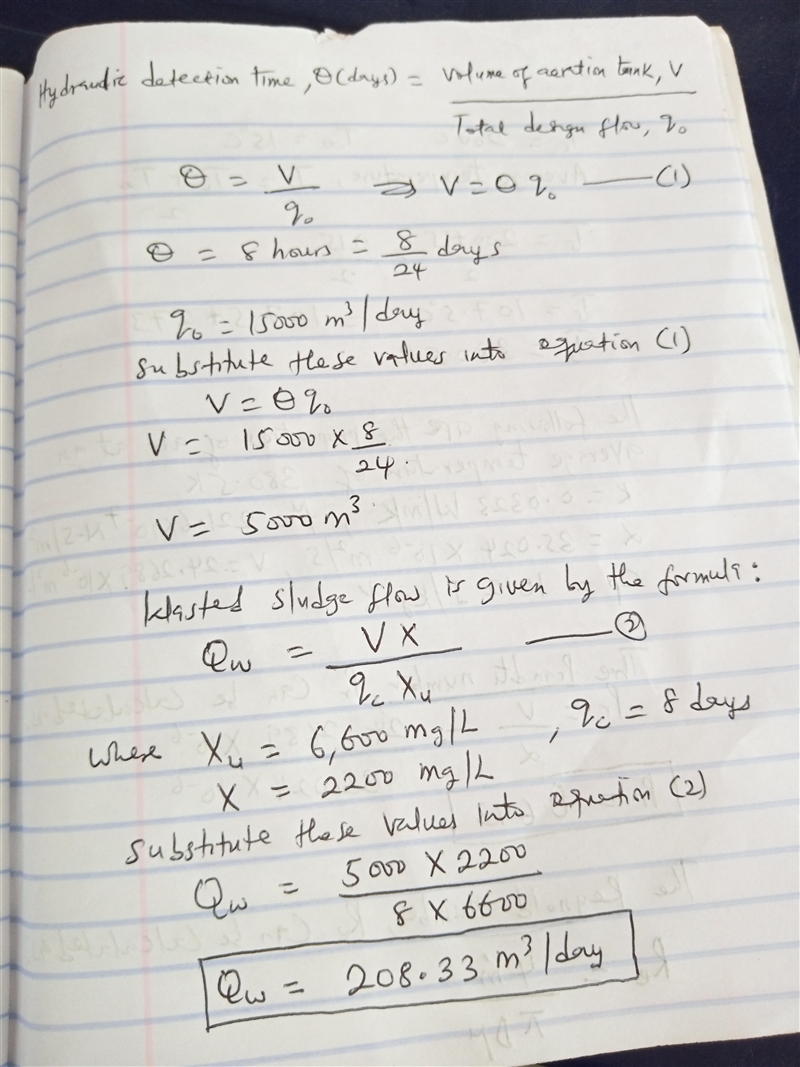 Hydraulic detection Time, θ(days) = Volume of aeration tank, V / Total design flow, q₀
θ = V / q₀ ⇒ V = θ q₀ —— (1)
θ = 8 hours = 8/24 days
q₀ = 15000 m³/day
substitute these values into equation (1)
V = θ q₀
V = 15000 × 8/24.
V = 5000 m³
Wasted sludge flow is given by the formula:
Qw = V X / qc Xu —— (2)
where Xu = 6,600 mg/L , qc = 8 days
X = 2200 mg/L
substitute these values into equation (2)
Qw = 5000 × 2200 / 8 × 6600
Qw = 208.33 m³/day